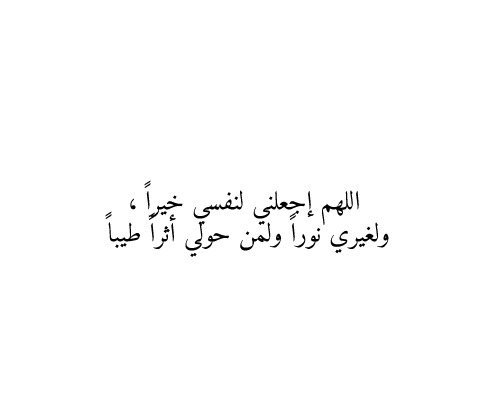 اللهم إجعلني لنفسي خيراً ،
ولغيري نوراً ولمن حولي أثراً طيباً